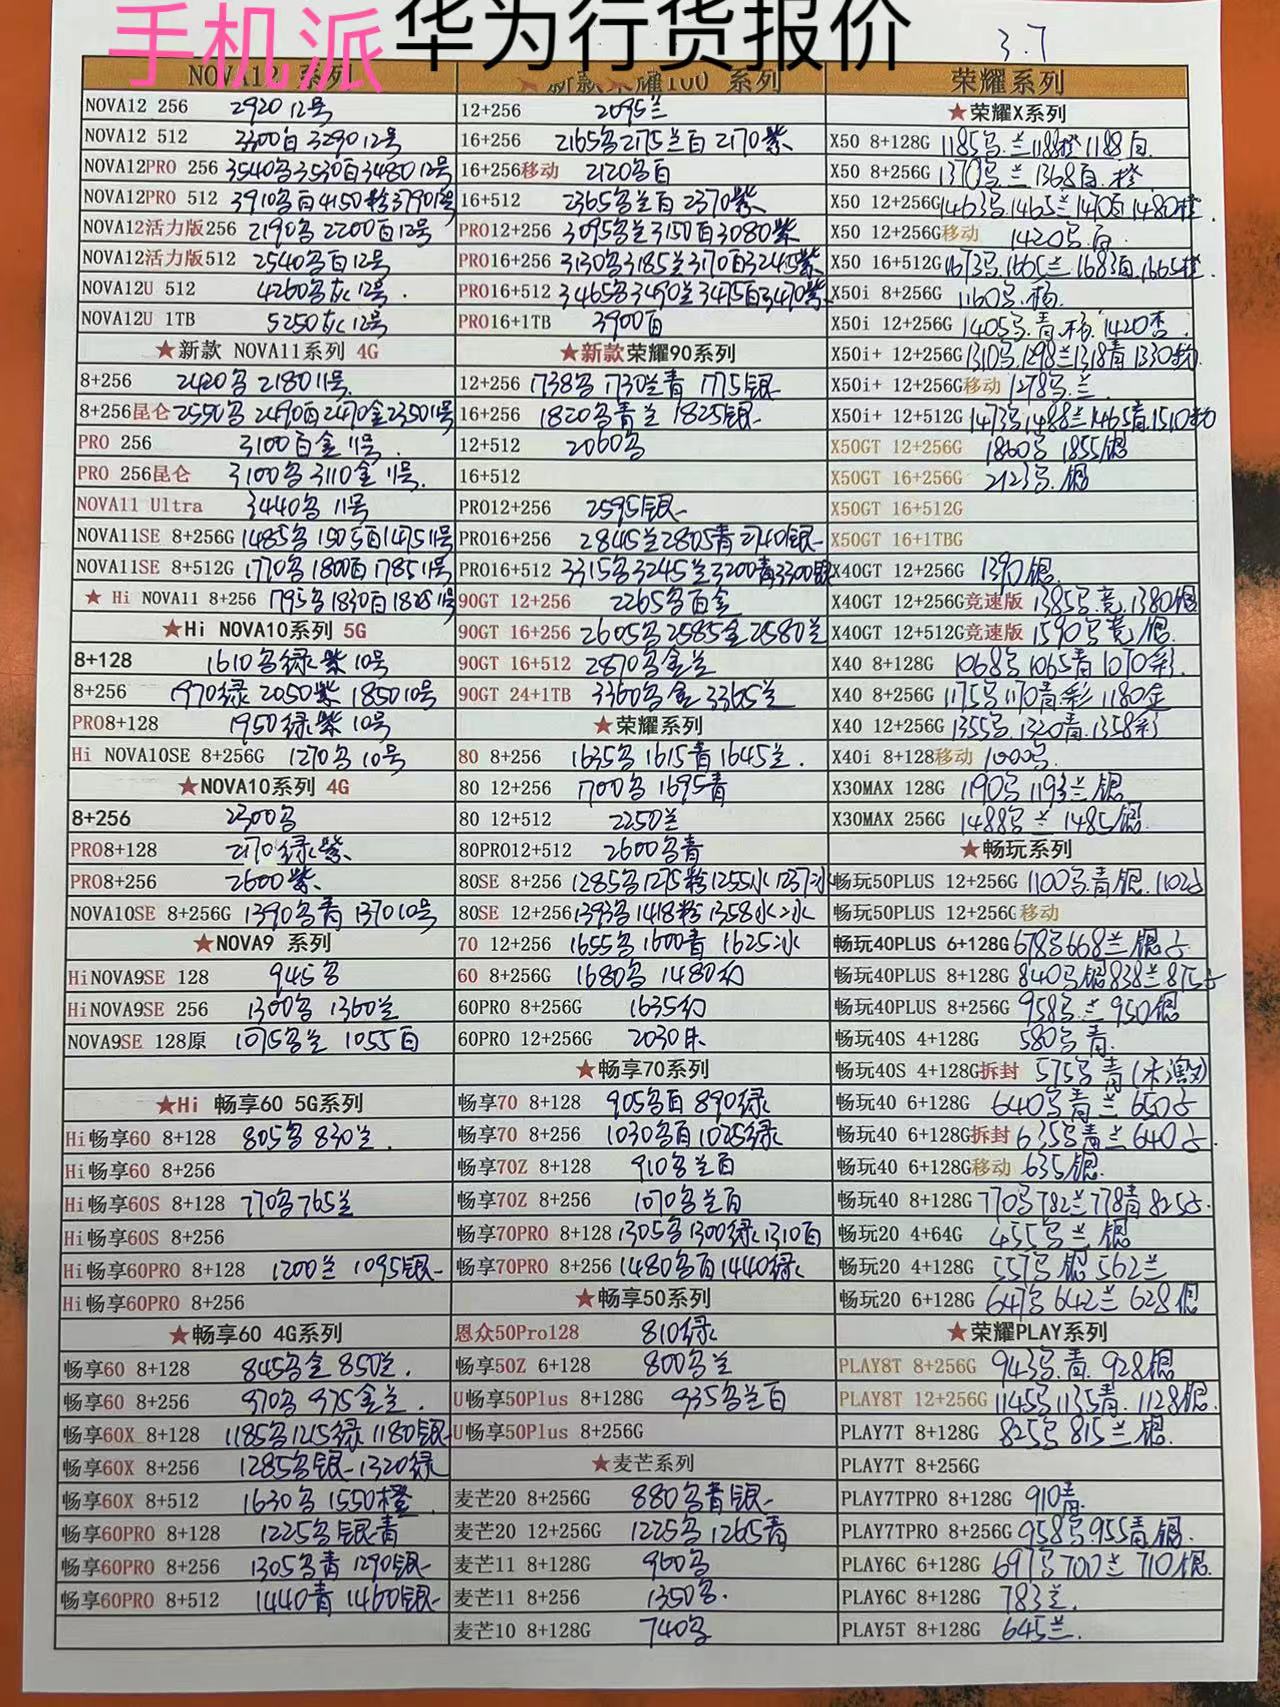 手机派
华为行货报价
3.7
NOVA12 系列
NOVA12 256 2920 12号
NOVA12 512 3300白 3290 12号
NOVA12PRO 256 3540名 3530白 3480 12号
NOVA12PRO 512 3910名白 4150粉 3790 12号
NOVA12活力版256 2190名 2200白 12号
NOVA12活力版512 2540名白 12号
NOVA12U 512 4260名灰 12号
NOVA12U 1TB 5250灰 12号
★新款 NOVA11系列 4G
8+256 2420名 2180 11号
8+256昆仑 2550名 2490白 2490金 2350 11号
PRO 256 3100白金 11号
PRO 256昆仑 3100名 3110金 11号
NOVA11 Ultra 3440名 11号
NOVA11SE 8+256G 1485名 1505白 1475 11号
NOVA11SE 8+512G 1770名 1800白 1785 11号
★ Hi NOVA11 8+256 1795名 1830白 11号
★Hi NOVA10系列 5G
8+128 1610名绿紫 10号
8+256 1970绿 2050紫 1850 10号
PRO8+128 1950绿紫 10号
Hi NOVA10SE 8+256G 1270名 10号
★NOVA10系列 4G
8+256 2300名
PRO8+128 2170绿紫
PRO8+256 2600紫
NOVA10SE 8+256G 1390名青 1370 10号
★NOVA9 系列
HiNOVA9SE 128 945名
HiNOVA9SE 256 1300名 1360兰
NOVA9SE 128原 1075名兰 1055白
★Hi 畅享60 5G系列
Hi畅享60 8+128 805名 830兰
Hi畅享60 8+256
Hi畅享60S 8+128 770名 765兰
Hi畅享60S 8+256
Hi畅享60PRO 8+128 1200兰 1095银
Hi畅享60PRO 8+256
★畅享60 4G系列
畅享60 8+128 845名金 850兰
畅享60 8+256 970名 975金兰
畅享60X 8+128 1185名 1215绿 1180银
畅享60X 8+256 1285名银 1320绿
畅享60X 8+512 1630名 1550橙
畅享60PRO 8+128 1225名银青
畅享60PRO 8+256 1305名青 1290银
畅享60PRO 8+512 1440青 1460银
新款荣耀100 系列
12+256 2095兰
16+256 2165名 2175兰白 2170紫
16+256移动 2120名白
16+512 2365名兰白 2370紫
PRO12+256 3095名兰 3150白 3080紫
PRO16+256 3130名 3185兰 3170白 3245紫
PRO16+512 3465名 3490兰 3475白 3470紫
PRO16+1TB 3900白
★新款荣耀90系列
12+256 1738名 1730兰青 1775银
16+256 1820名青兰 1825银
12+512 2060名
16+512
PRO12+256 2595银
PRO16+256 2845兰 2805青 2740银
PRO16+512 3315名 3245兰 3200青 3300银
90GT 12+256 2265名白金
90GT 16+256 2605名 2585金 2580兰
90GT 16+512 2870名金兰
90GT 24+1TB 3360名金 3365兰
★荣耀系列
80 8+256 1635名 1615青 1645兰
80 12+256 1700名 1695青
80 12+512 2250兰
80PRO12+512 2600名青
80SE 8+256 1285名 1275粉 1255冰 1237冰
80SE 12+256 1393名 1418粉 1358冰
70 12+256 1655名 1600青 1625冰
60 8+256G 1680名 1480幻
60PRO 8+256G 1635幻
60PRO 12+256G 2030
★畅享70系列
畅享70 8+128 905名白 890绿
畅享70 8+256 1030名白 1025绿
畅享70Z 8+128 910名兰白
畅享70Z 8+256 1070名兰白
畅享70PRO 8+128 1305名 1300绿 1310白
畅享70PRO 8+256 1480名白 1440绿
★畅享50系列
恩众50Pro128 810绿
畅享50Z 6+128 800名兰
U畅享50Plus 8+128G 935名兰白
U畅享50Plus 8+256G
★麦芒系列
麦芒20 8+256G 880名青银
麦芒20 12+256G 1225名 1265青
麦芒11 8+128G 960名
麦芒11 8+256 1350名
麦芒10 8+128G 740名
荣耀系列
★荣耀X系列
X50 8+128G 1185名兰 1188橙 1188白
X50 8+256G 1370名兰 1368白橙
X50 12+256G 1463名 1465兰 1470白 1480橙
X50 12+256G移动 1420名白
X50 16+512G 1673名 1665兰 1683白 1665橙
X50i 8+256G 1160名杨
X50i 12+256G 1405名青杨 1420杏
X50i+ 12+256G 1310名 1298兰 1318青 1330粉
X50i+ 12+256G移动 1278名兰
X50i+ 12+512G 1473名 1488兰 1465青 1510粉
X50GT 12+256G 1860名 1855银
X50GT 16+256G 2123名银
X50GT 16+512G
X50GT 16+1TBG
X40GT 12+256G 1390银
X40GT 12+256G竞速版 1385名竞 1380银
X40GT 12+512G竞速版 1590名竞银
X40 8+128G 1068名 1065青 1070彩
X40 8+256G 1175名 1170青彩 1180金
X40 12+256G 1355名 1320青 1358彩
X40i 8+128移动 1000名
X30MAX 128G 1190名 1193兰银
X30MAX 256G 1488名兰 1485银
★畅玩系列
畅玩50PLUS 12+256G 1100名青银
畅玩50PLUS 12+256G移动
畅玩40PLUS 6+128G 678名 668兰银
畅玩40PLUS 8+128G 840名银 838兰
畅玩40PLUS 8+256G 958名兰 950银
畅玩40S 4+128G 580名青
畅玩40S 4+128G拆封 575名青(未激)
畅玩40 6+128G 640名青兰 650
畅玩40 6+128G拆封 635名青兰 640
畅玩40 6+128G移动 635银
畅玩40 8+128G 770名 782兰 778青 825
畅玩20 4+64G 455名兰银
畅玩20 4+128G 557名银 562兰
畅玩20 6+128G 647名 642兰 628银
★荣耀PLAY系列
PLAY8T 8+256G 943名青 928银
PLAY8T 12+256G 1145名 1135青 1128银
PLAY7T 8+128G 825名 815兰银
PLAY7T 8+256G
PLAY7TPRO 8+128G 910青
PLAY7TPRO 8+256G 958名 955青银
PLAY6C 6+128G 697名 700兰 710银
PLAY6C 8+128G 783兰
PLAY5T 8+128G 645兰